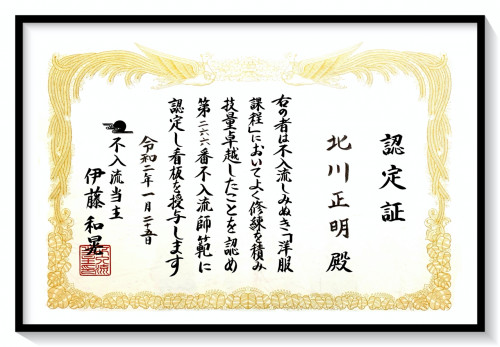 認定証
北川正明殿
右の者は不入流しみぬき「洋服
課程」においてよく修練を積み
技量卓越したことを認め
第二六六番不入流師範に
認定し看板を授与します
令和二年一月二十五日
不入流当主
伊藤和晃